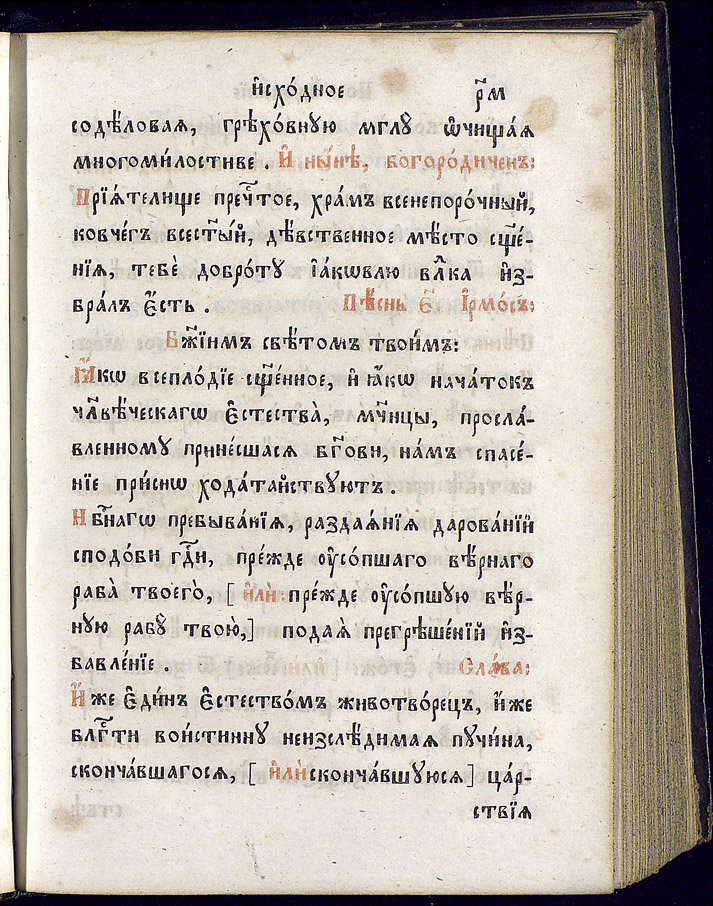 и҆схо́дное р҃м
содѣ́ловая, грѣхо́вную мглу ѡ҆чища́ѧ
многоми́лостиве. И҆ ны́нѣ, богоро́диченъ:
Прїѧ́телище пречⷭ҇тое, хра́мъ всенепоро́чный,
ковче́гъ всест҃ы́й, дѣ́вственное мѣ́сто сщ҃е́-
нїѧ, тебѐ добро́ту і҆а́кѡвлю влⷣка и҆з-
бра́лъ є҆́сть. Пѣ́снь є҃. І҆рмо́съ:
Бж҃їимъ свѣ́томъ твои́мъ:
Ꙗ҆́кѡ всепло́дїе сщ҃е́нное, и҆ ꙗ҆́кѡ нача́токъ
чл҃вѣ́ческагѡ є҆стества̀, мч҃ницы, просла́-
вленному прине́сшасѧ бг҃ови, на́мъ спасе́-
нїе при́снѡ хода́тайствуютъ.
Нбⷭ҇нагѡ пребыва́нїѧ, раздаѧ́нїѧ дарова́нїй
сподо́би гдⷭ҇и, пре́жде ᲂу҆со́пшаго вѣ́рнаго
раба̀ твоего̀, [ и҆лѝ: пре́жде ᲂу҆со́пшую вѣ́р-
ную рабꙋ̀ твою̀,] подаѧ̀ прегрѣше́нїй и҆з-
бавле́нїе. Сла́ва:
И҆́же є҆ди́нъ є҆стество́мъ животво́рецъ, и҆́же
блгⷭ҇ти вои́стинну неизслѣди́маѧ пучи́на,
сконча́вшагосѧ, [ и҆лѝ сконча́вшуюсѧ ] ца́р-
ствїѧ